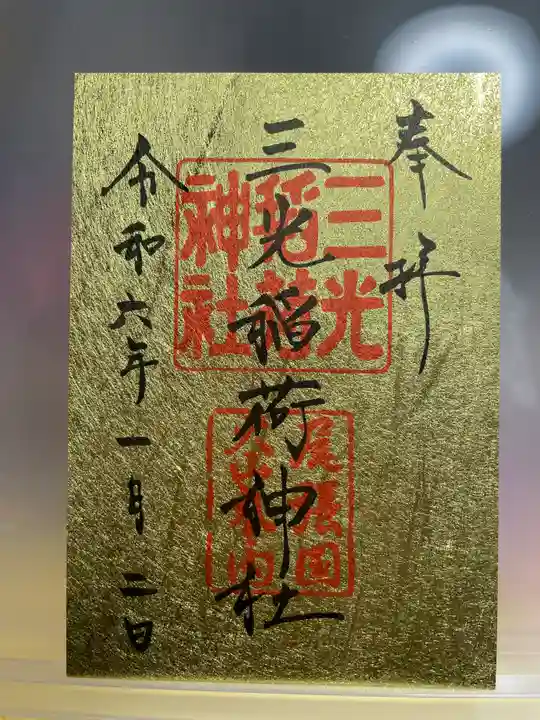 奉拝
三光稲荷神社
三光
稲荷
神社
尾張國
令和六年一月二日